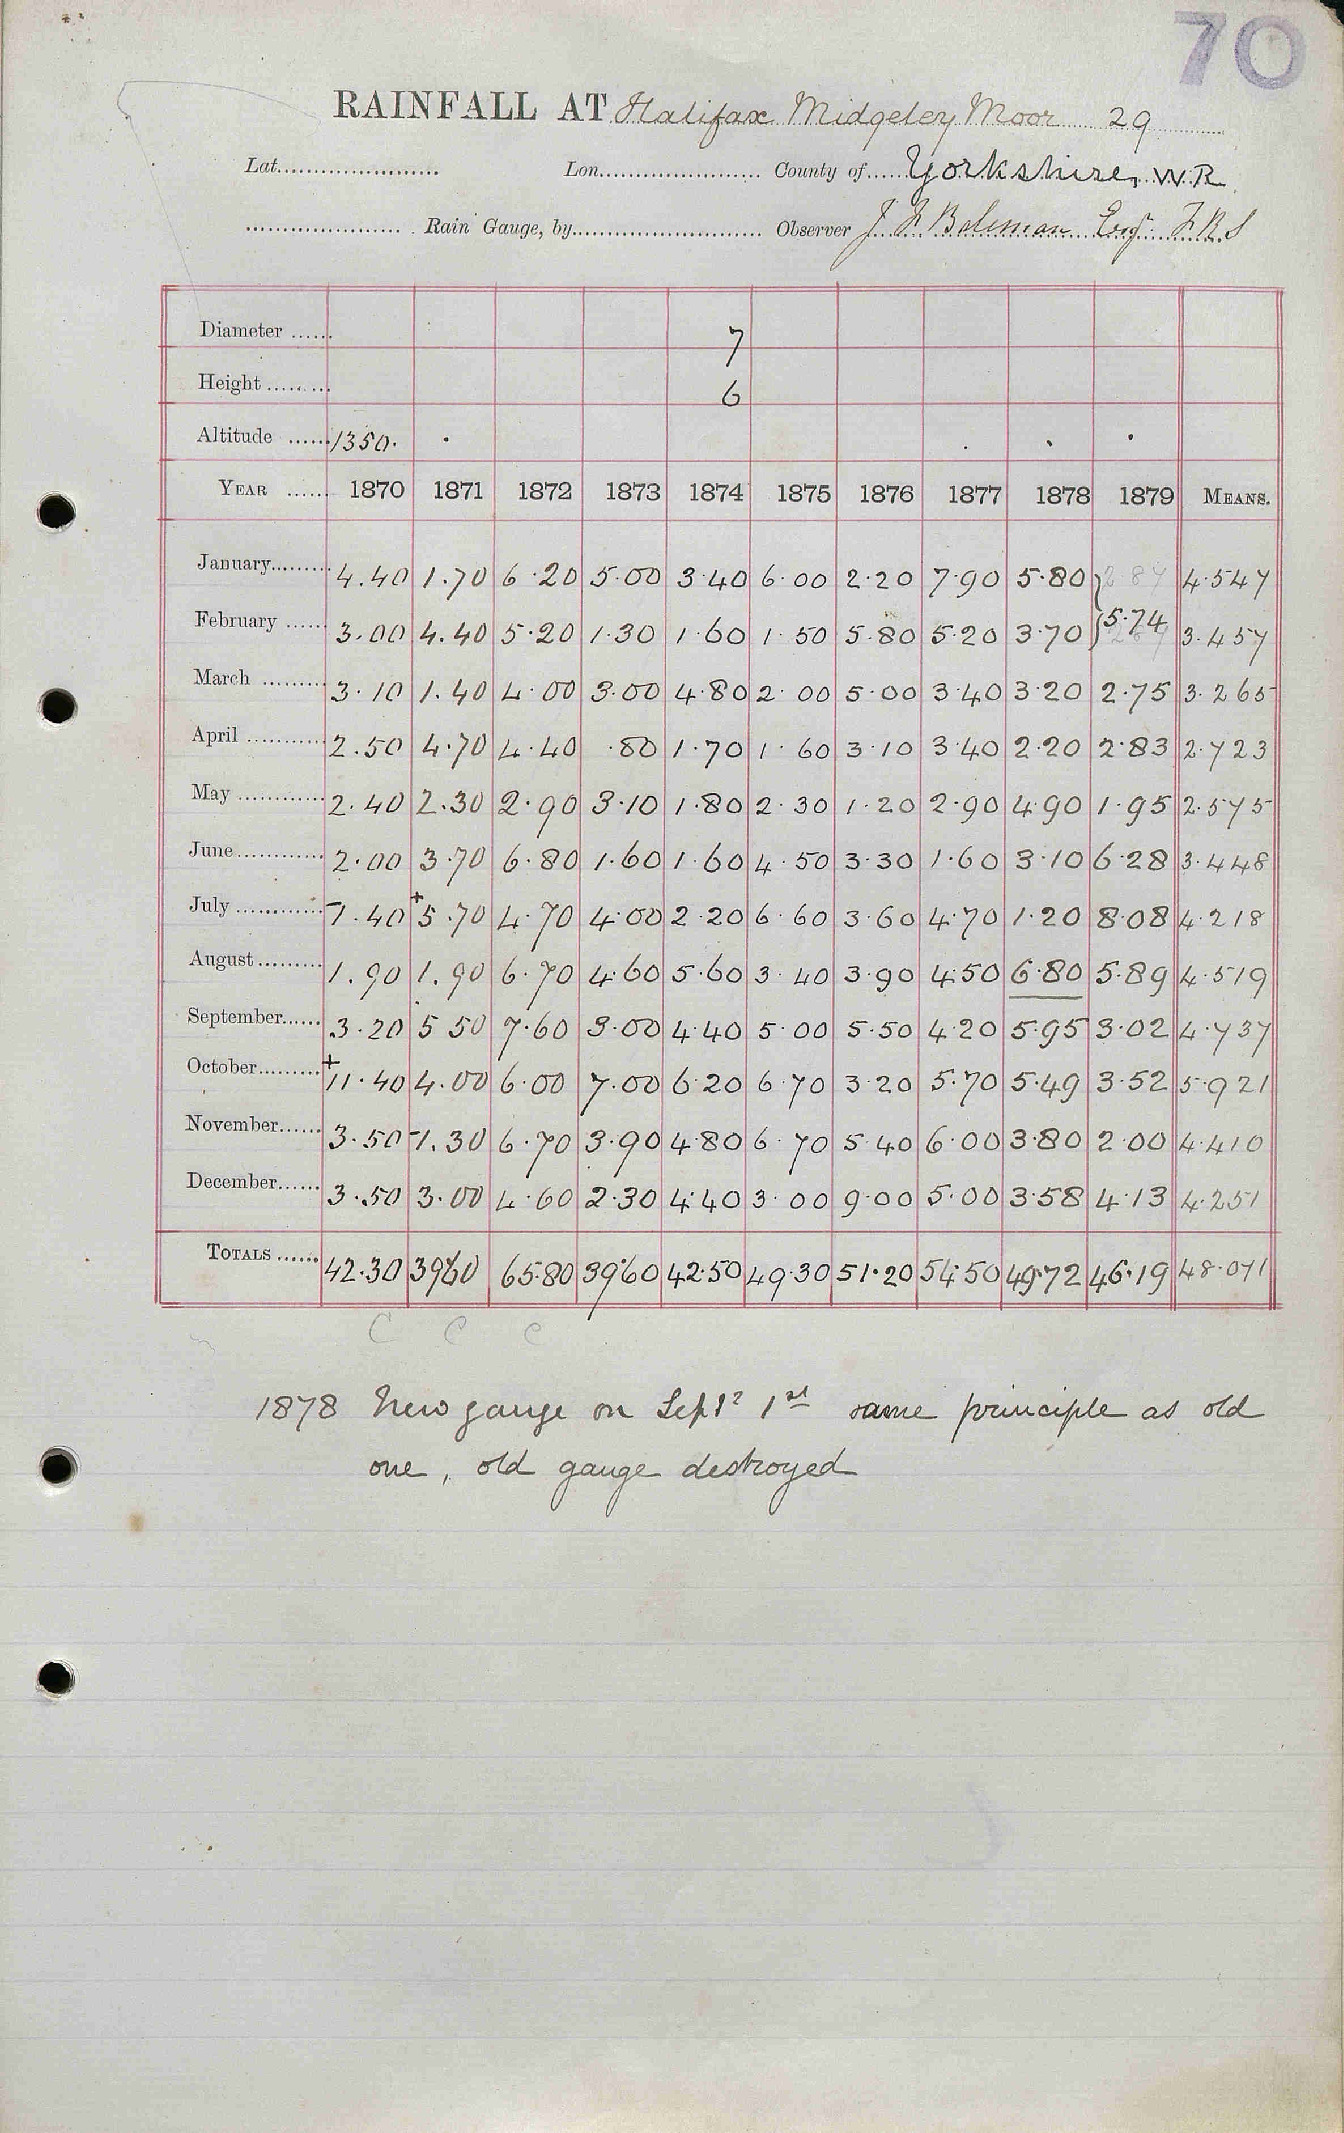 70
RAINFALL AT Halifax Midgeley Moor 29
Lat. Lon. County of Yorkshire, W.R
Rain Gauge, by Observer J F Bateman Esq. F.R.S
Diameter 7
Height 6
Altitude 1350.
YEAR 1870 1871 1872 1873 1874 1875 1876 1877 1878 1879 MEANS.
January 4.40 1.70 6.20 5.00 3.40 6.00 2.20 7.90 5.80 2 87 4.547
February 3.00 4.40 5.20 1.30 1.60 1.50 5.80 5.20 3.70 5.74 2 87 3.457
March 3.10 1.40 4.00 3.00 4.80 2.00 5.00 3.40 3.20 2.75 3.265
April 2.50 4.70 4.40 .80 1.70 1.60 3.10 3.40 2.20 2.83 2.723
May 2.40 2.30 2.90 3.10 1.80 2.30 1.20 2.90 4.90 1.95 2.575
June 2.00 3.70 6.80 1.60 1.60 4.50 3.30 1.60 3.10 6.28 3.448
July 1.40 +5.70 4.70 4.00 2.20 6.60 3.60 4.70 1.20 8.08 4.218
August 1.90 1.90 6.70 4.60 5.60 3.40 3.90 4.50 6.80 5.89 4.519
September 3.20 5.50 7.60 3.00 4.40 5.00 5.50 4.20 5.95 3.02 4.737
October +11.40 4.00 6.00 7.00 6.20 6.70 3.20 5.70 5.49 3.52 5.921
November 3.50 -1.30 6.70 3.90 4.80 6.70 5.40 6.00 3.80 2.00 4.410
December 3.50 3.00 4.60 2.30 4.40 3.00 9.00 5.00 3.58 4.13 4.251
TOTALS 42.30 39.60 65.80 39.60 42.50 49.30 51.20 54.50 49.72 46.19 48.071
C C C
1878 New gauge on Sept? 1st same principle as old
one, old gauge destroyed